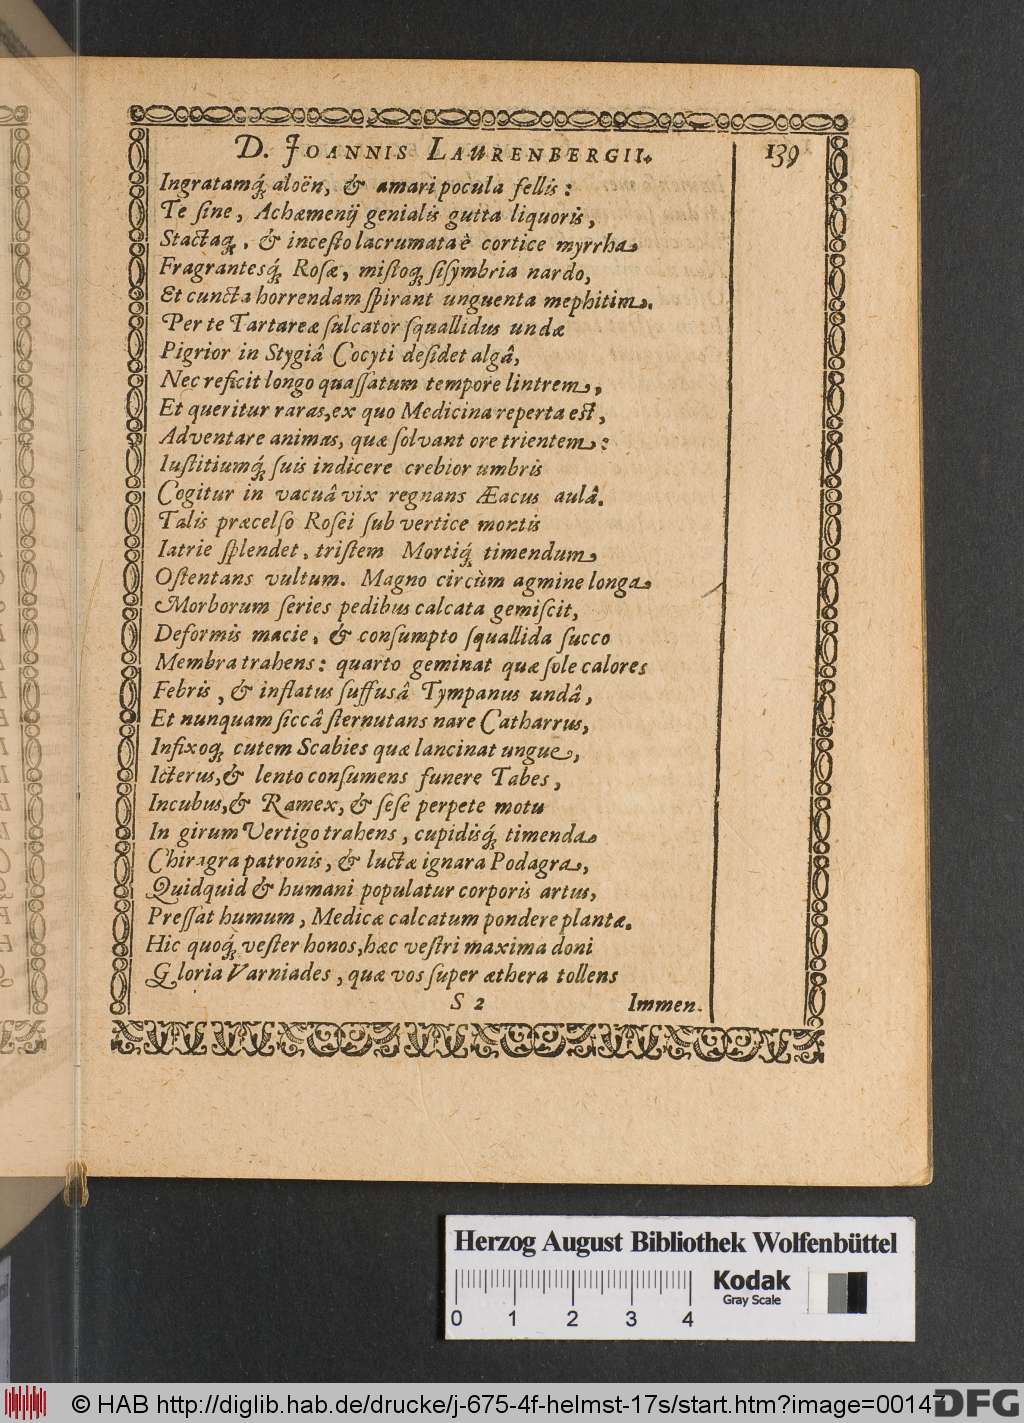 D. JOANNIS LAURENBERGII. 139
Ingratamq́; aloën, & amari pocula fellis:
Te ſine, Achæmenij genialis gutta liquoris,
Stactaq;, & inceſto lacrumata è cortice myrrha
Fragrantesq́; Roſæ, miſtoq; ſiſymbria nardo,
Et cuncta horrendam ſpirant unguenta mephitim.
Per te Tartareæ ſulcator ſquallidus undæ
Pigrior in Stygiâ Cocyti deſidet algâ,
Nec reficit longo quaſſatum tempore lintrem,
Et queritur raras, ex quo Medicina reperta eſt,
Adventare animas, quæ ſolvant ore trientem:
Iuſtitiumq́; ſuis indicere crebior umbris
Cogitur in vacuâ vix regnans Æacus aulâ.
Talis præcelſo Roſei ſub vertice montis
Iatrie ſplendet, triſtem Mortiq́; timendum
Oſtentans vultum. Magno circùm agmine longa
Morborum ſeries pedibus calcata gemiſcit,
Deformis macie, & conſumpto ſquallida ſucco
Membra trahens: quarto geminat quæ ſole calores
Febris, & inflatus ſuffusâ Tympanus undâ,
Et nunquam ſiccâ ſternutans nare Catharrus,
Infixoq; cutem Scabies quæ lancinat ungue,
Icterus, & lento conſumens funere Tabes,
Incubus, & Ramex, & ſeſe perpete motu
In girum Vertigo trahens, cupidisq́; timenda
Chiragra patronis, & luctæ ignara Podagra,
Quidquid & humani populatur corporis artus,
Preſſat humum, Medicæ calcatum pondere plantæ.
Hic quoq́; veſter honos, hæc veſtri maxima doni
Gloria Varniades, quæ vos ſuper æthera tollens
S 2 Immen.
Herzog August Bibliothek Wolfenbüttel
Kodak
Gray Scale
0 1 2 3 4
© HAB http://diglib.hab.de/drucke/j-675-4f-helmst-17s/start.htm?image=00147
DFG